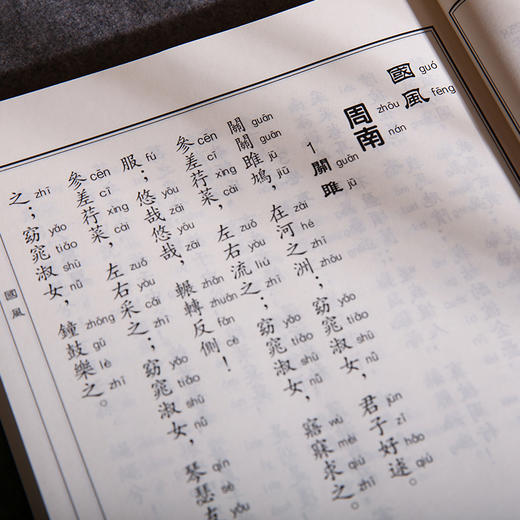 國風
guó fēng
周南
zhōu nán
1 關雎
guān jū
關關雎鳩,在河之洲;窈窕淑女,君子好逑。
guān jū jiū zài hé zhī zhōu yǎo tiǎo shū nǚ jūn zǐ hǎo qiú
參差荇菜,左右流之;窈窕淑女,寤寐求之。
cēn cī xìng cài zuǒ yòu liú zhī yǎo tiǎo shū nǚ wù mèi qiú zhī
服;悠哉悠哉,輾轉反側!
fú yōu zāi yōu zāi zhǎn zhuǎn fǎn cè
參差荇菜,左右采之;窈窕淑女,琴瑟友
cēn cī xìng cài zuǒ yòu cǎi zhī yǎo tiǎo shū nǚ qín sè yǒu
之;窈窕淑女,鐘鼓樂之。
zhī yǎo tiǎo shū nǚ zhōng gǔ lè zhī
國風